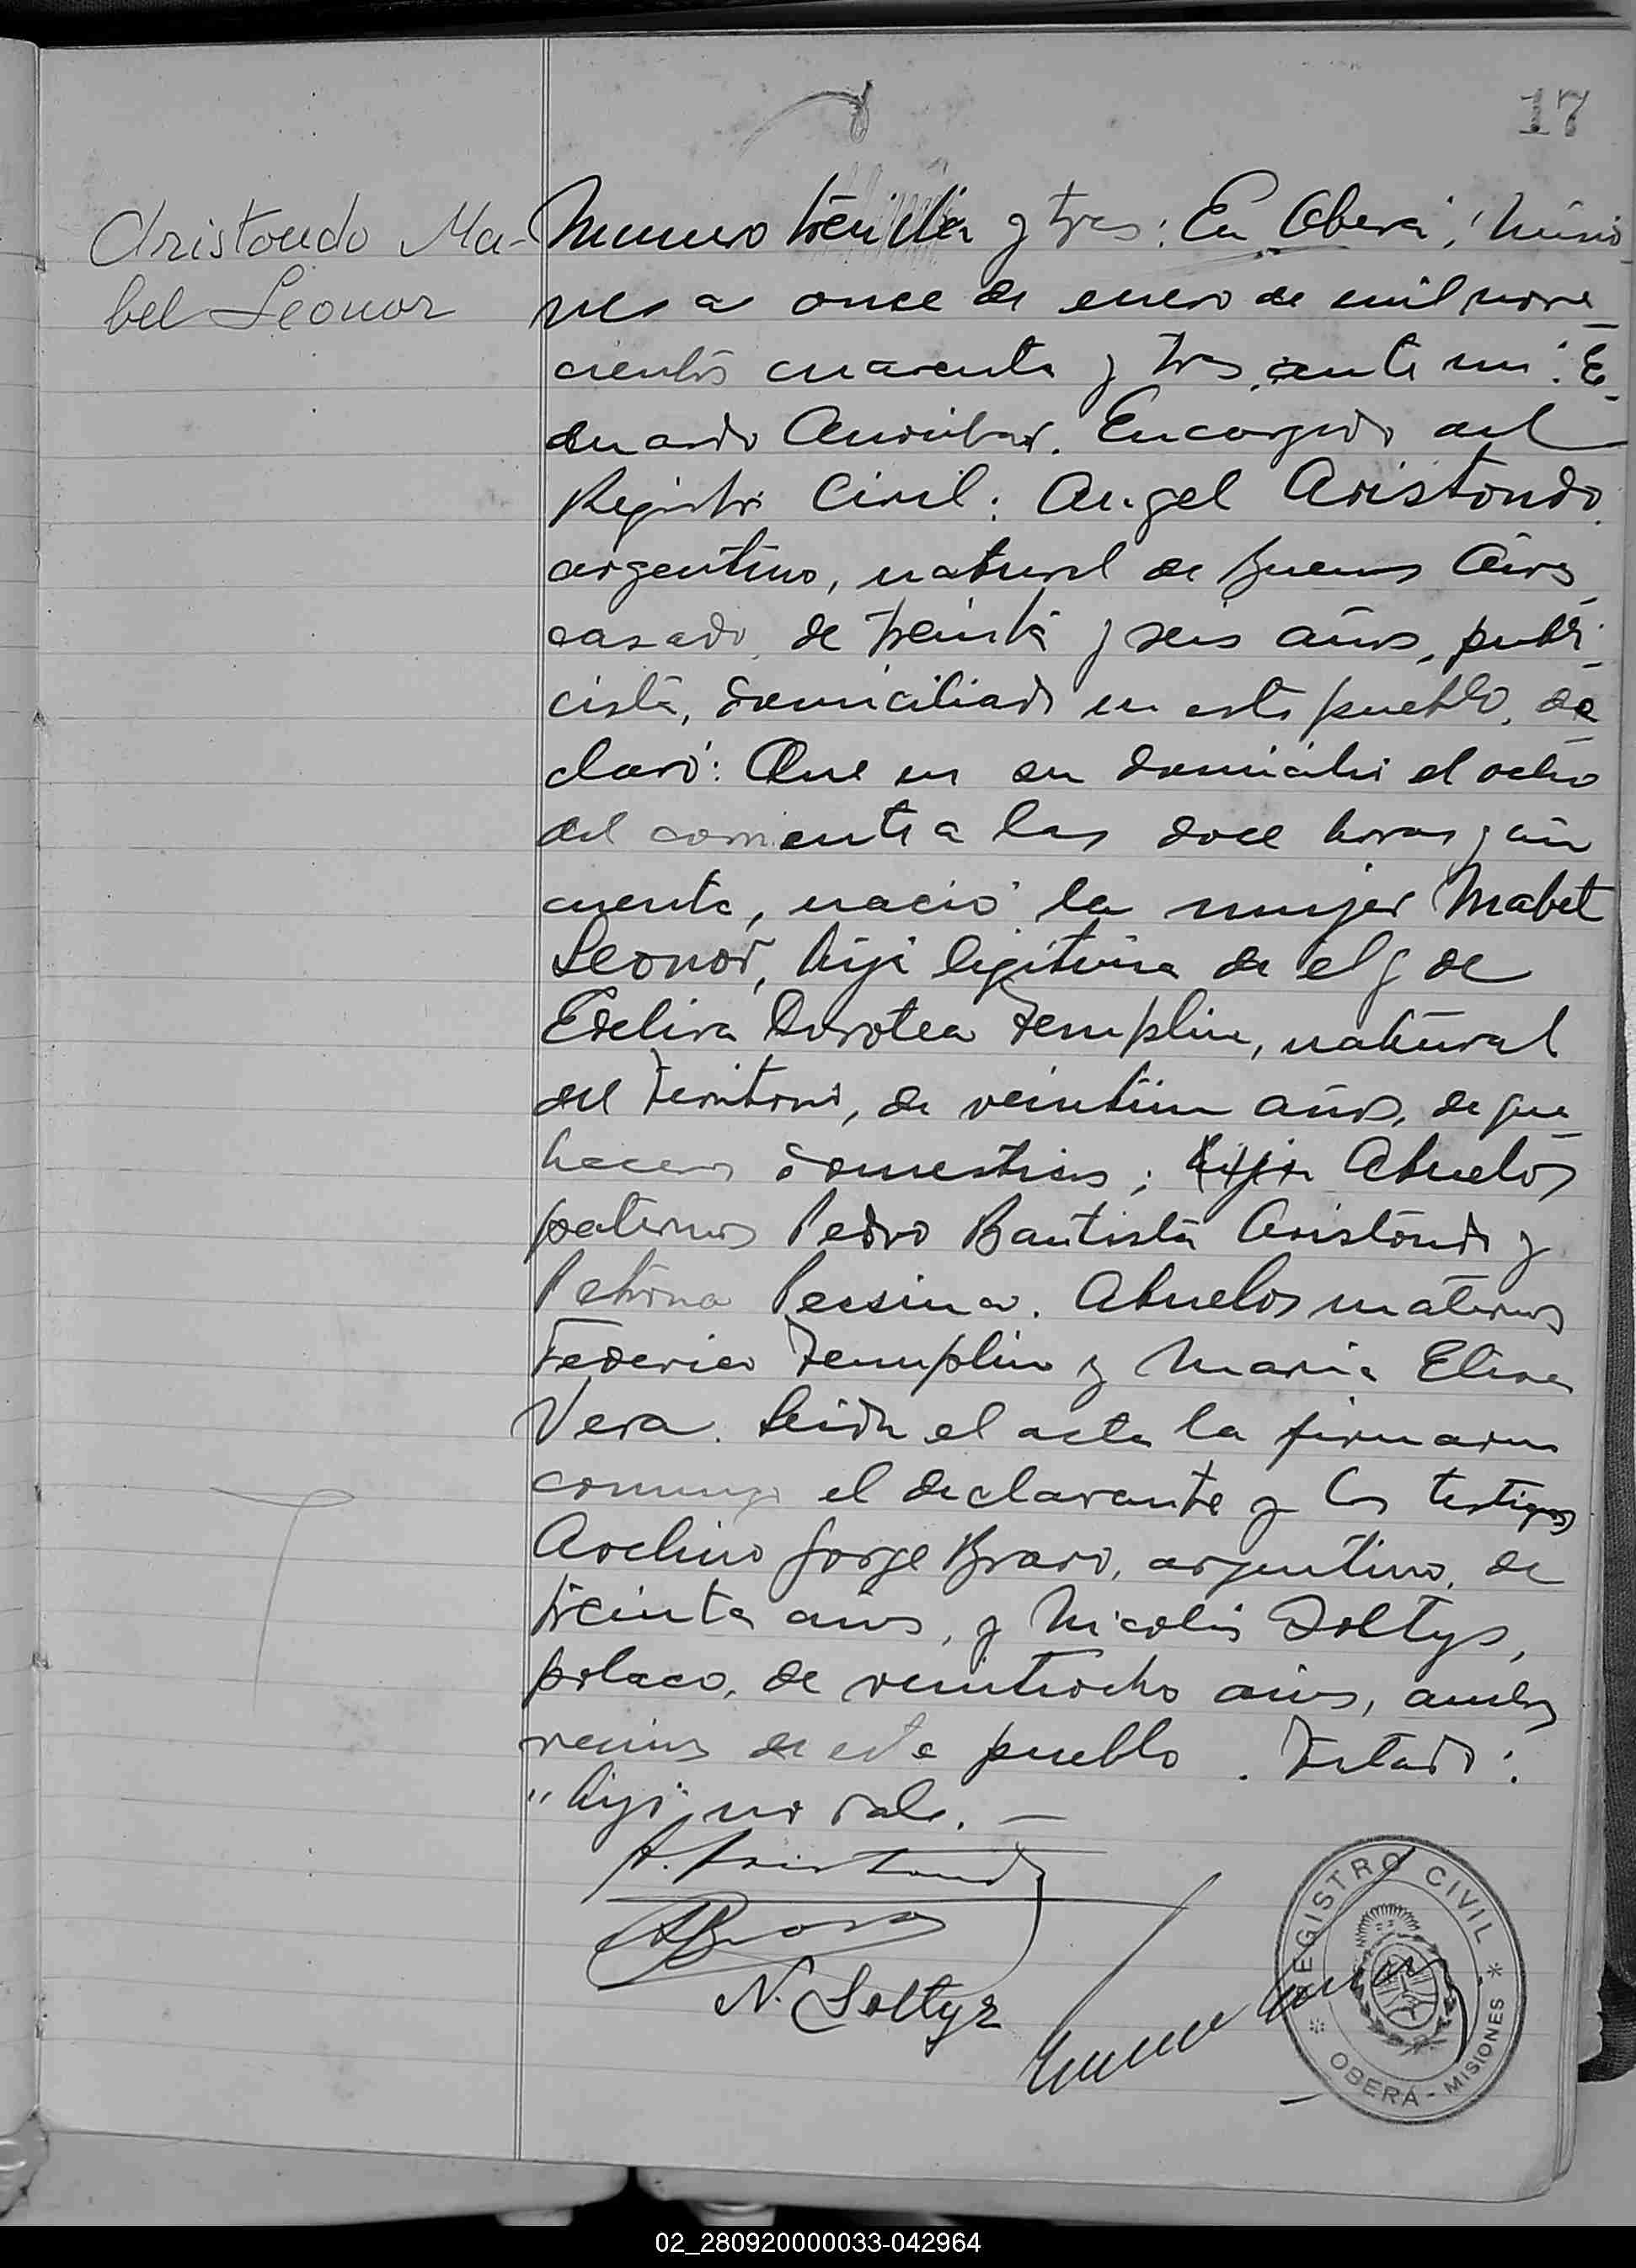 17
Aristondo Ma-
bel Leonor
Numero treinta y tres: En Oberá, Misio
nes a once de enero de mil nove
cientos cuarenta y tres, ante mi: E
duardo Encargado del
Registro Civil: Angel Aristondo
argentino, natural de Buenos Aires
casado, de treinta y seis años, publi
cista, domiciliado en este pueblo, de
claró: Que en su domicilio el ocho
del corriente a las doce horas y cin
cuenta, nació la mujer Mabel
Leonor, hija legitima de el y de
Edelira Dorotea Templin, natural
del Territorio, de veintiun años, de que
haceres domesticos; hija Abuelos
paternos Pedro Bautista Aristondo y
Petrona Pessina. Abuelos maternos
Federico Templin y Maria Elira
Vera. Leida el acta la firmaron
conmigo el declarante y los testigos
Avelino Jorge Bravo, argentino, de
treinta años, y Nicolás Soltys,
polaco, de veintiocho años, ambos
vecinos de este pueblo. Testado:
"hija" no vale. —
A. Aristondo
ABravo
N. Soltys
REGISTRO CIVIL
* OBERÁ - MISIONES *
02_280920000033-042964